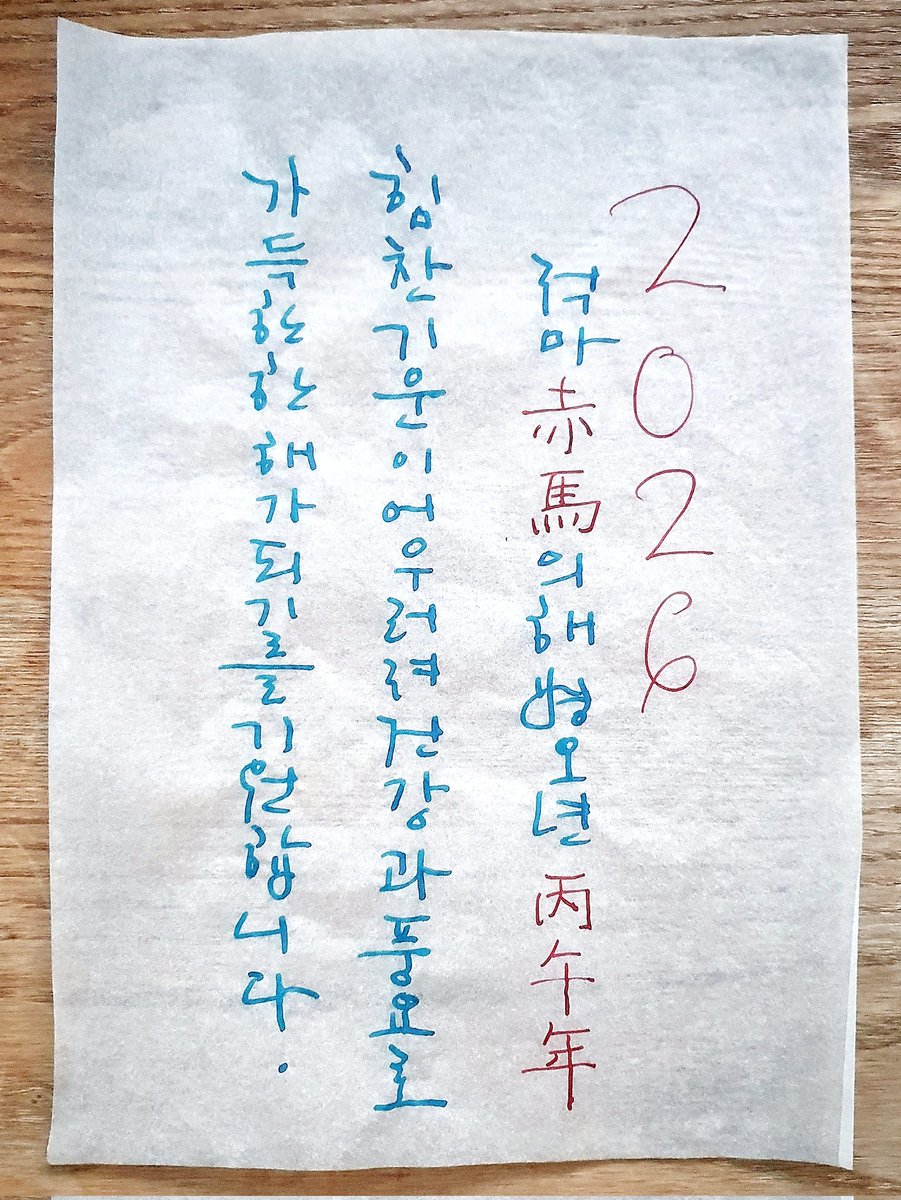 2026
적마赤馬의해병오년丙午年
힘찬기운이어우러져건강과풍요로
가득한한해가되기를기원합니다.